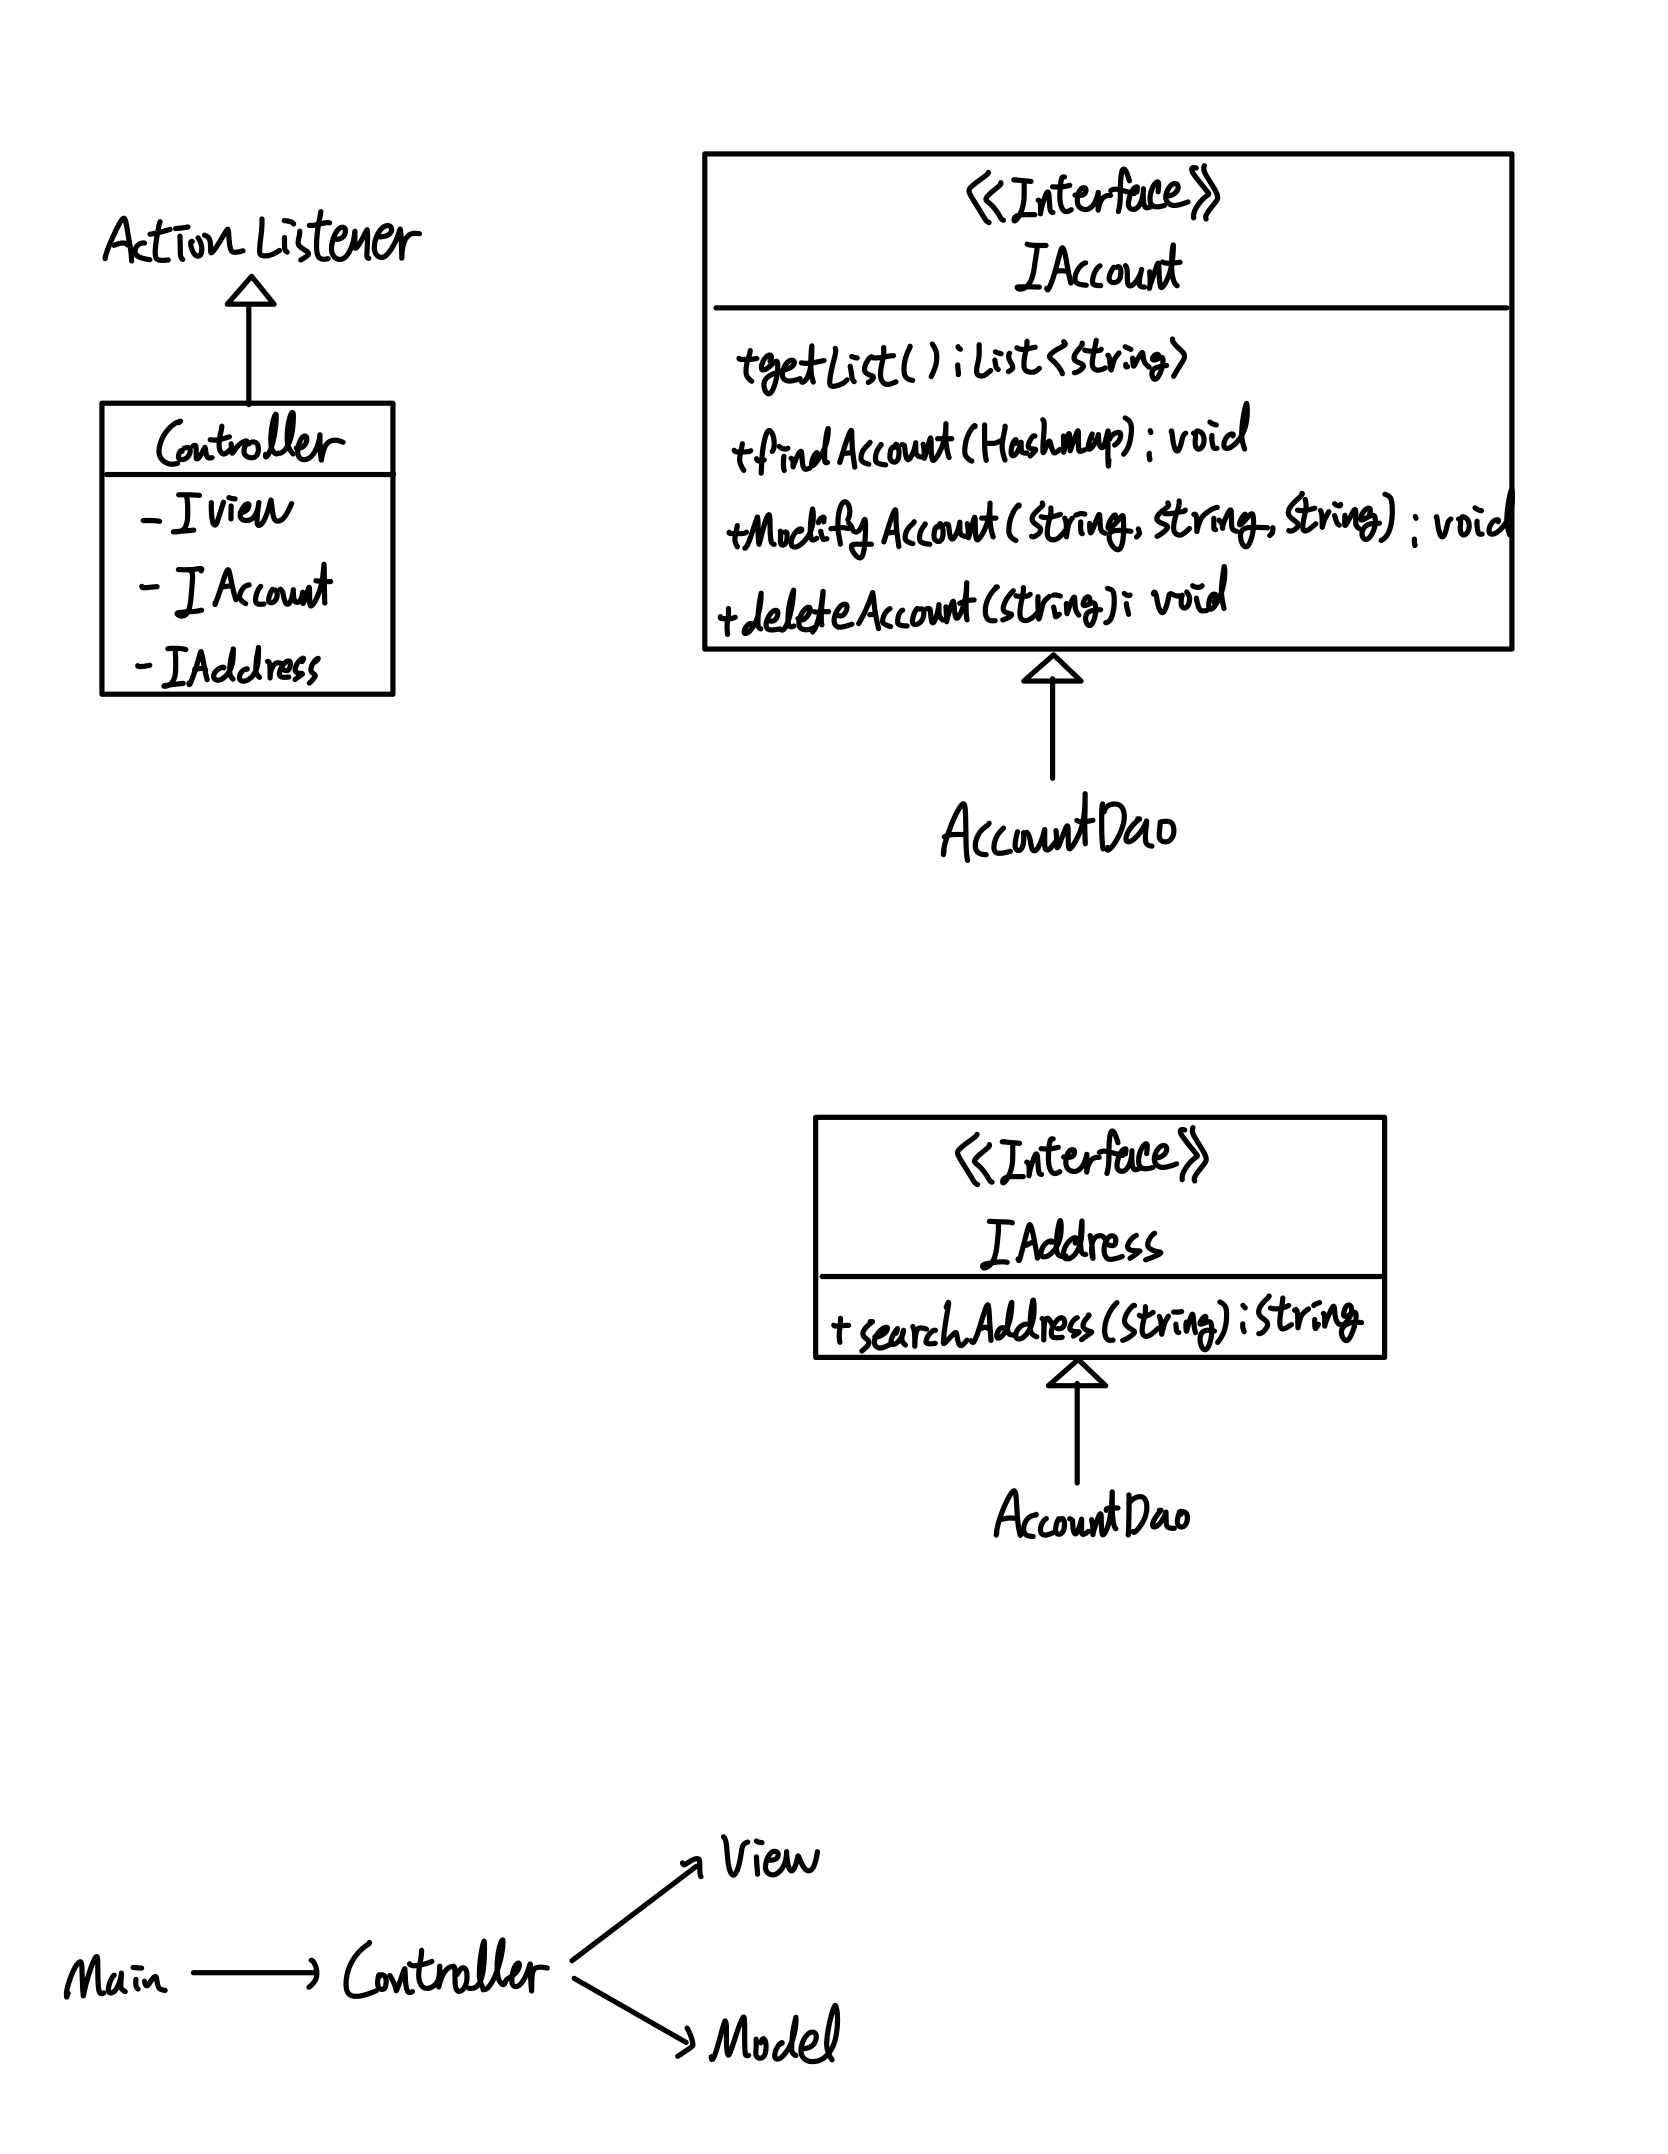 Action Listener
Controller
- I View
- I Account
- IAddress
《Interface》
IAccount
+getList() : List<string>
+find Account (Hashmap) : void
+Modify Account (string, string, string) : void
+deleteAccount (string) : void
AccountDao
《Interface》
IAddress
+searchAddress (string) : string
AccountDao
Main
Controller
View
Model